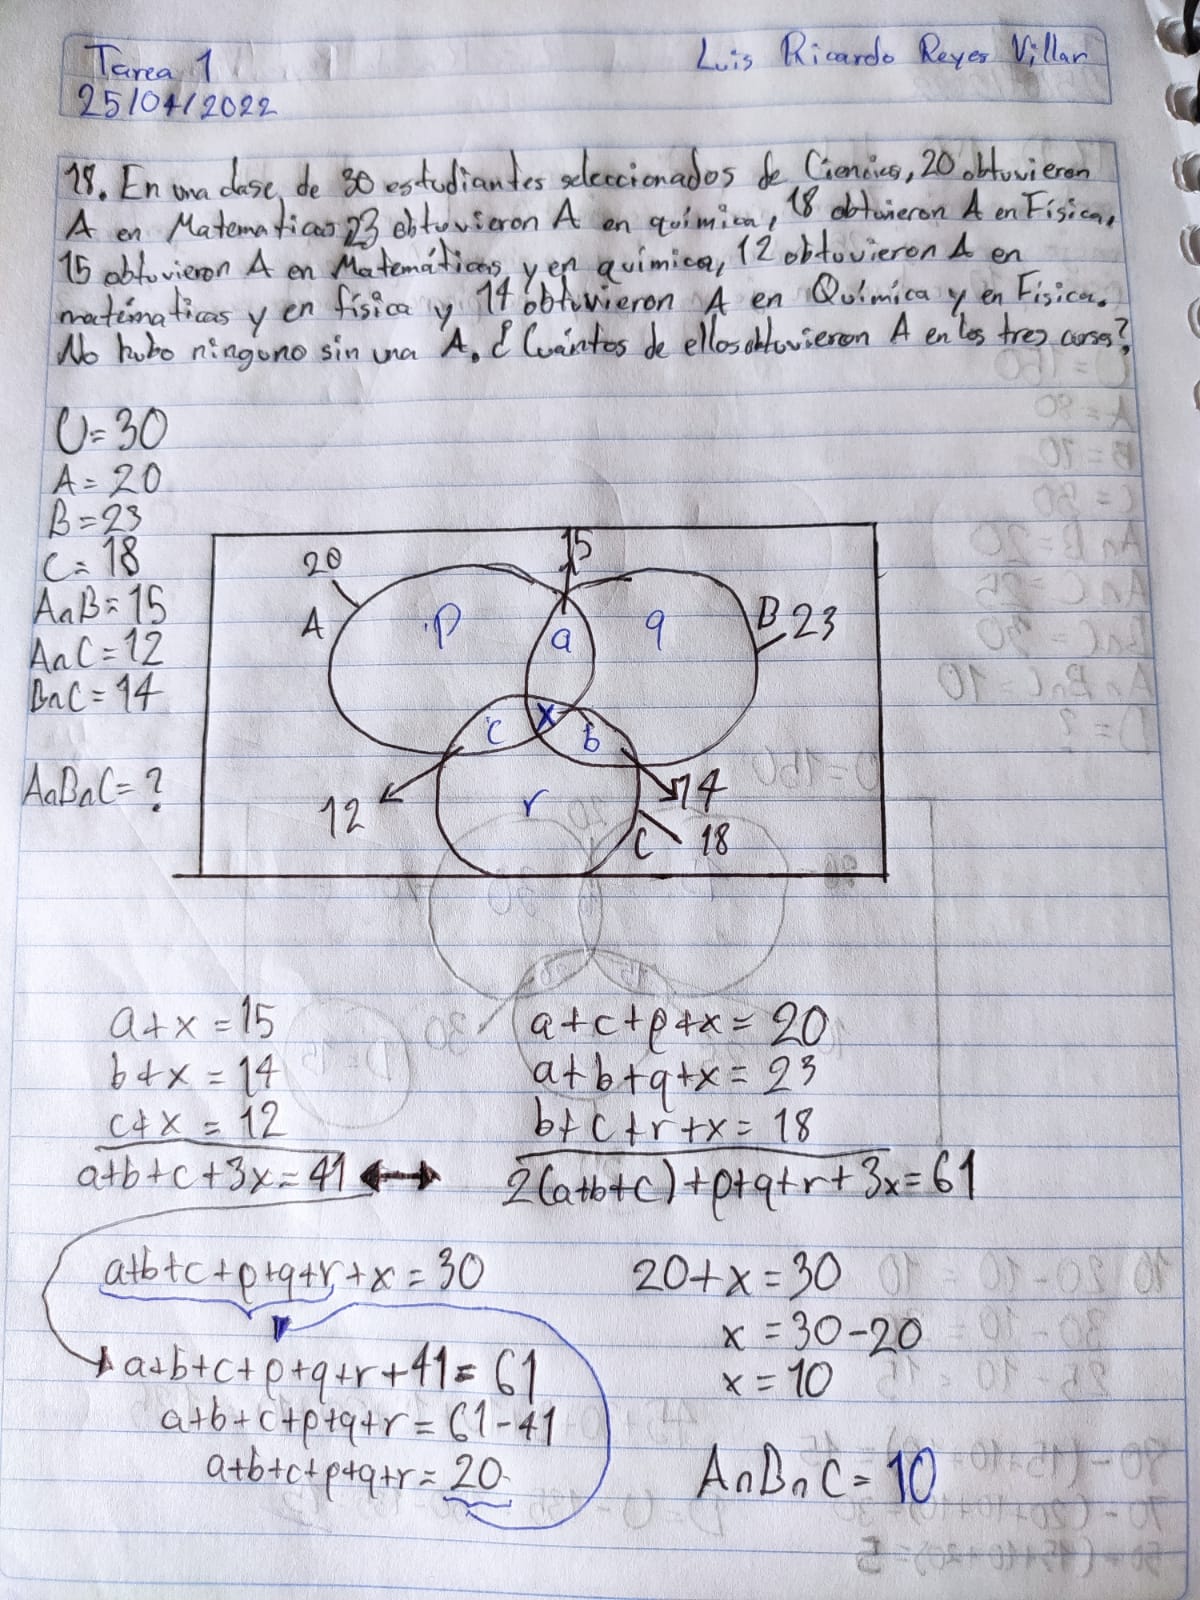 Tarea 1
Luis Ricardo Reyes Villar
25/04/2022
18. En una clase de 30 estudiantes seleccionados de Ciencias, 20 obtuvieron
A en Matematicas 23 obtuvieron A en química, 18 obtuvieron A en Física,
15 obtuvieron A en Matemáticas y en química, 12 obtuvieron A en
matématicas y en física y 14 obtuvieron A en Química y en Física.
No hubo ninguno sin una A. ¿Cuántos de ellos obtuvieron A en los tres cursos?
U=30
A=20
B=23
C=18
A∩B=15
A∩C=12
B∩C=14
A∩B∩C=?
15
20
A
p
a
q
B 23
c
x
b
12
r
14
C
18
a+x=15
b+x=14
c+x=12
a+b+c+3x=41
a+c+p+x=20
a+b+q+x=23
b+c+r+x=18
2(a+b+c)+p+q+r+3x=61
a+b+c+p+q+r+x=30
a+b+c+p+q+r+41=61
a+b+c+p+q+r=61-41
a+b+c+p+q+r=20
20+x=30
x=30-20
x=10
A∩B∩C=10